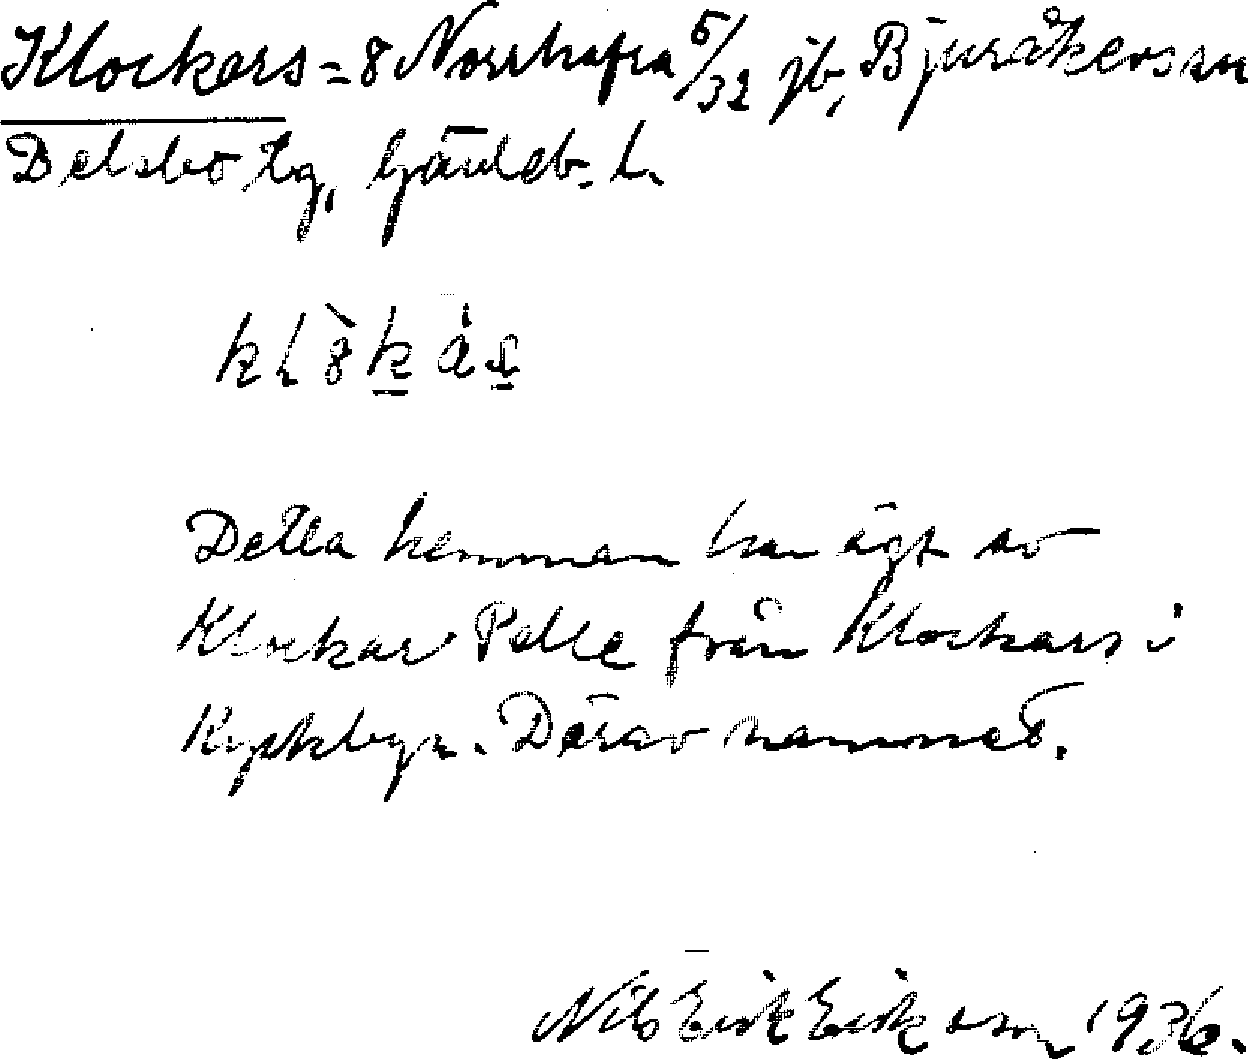 Klockers = 8 Norrhafra 5/32 jb, Bjuråkers sn
Delsbo tg, Gävleb. L.
Detta hemman har ägt av
Klockar Pelle från Klockars i
Kyrkbyn. Därav namnet.
Nils Erik Eriksson 1936.